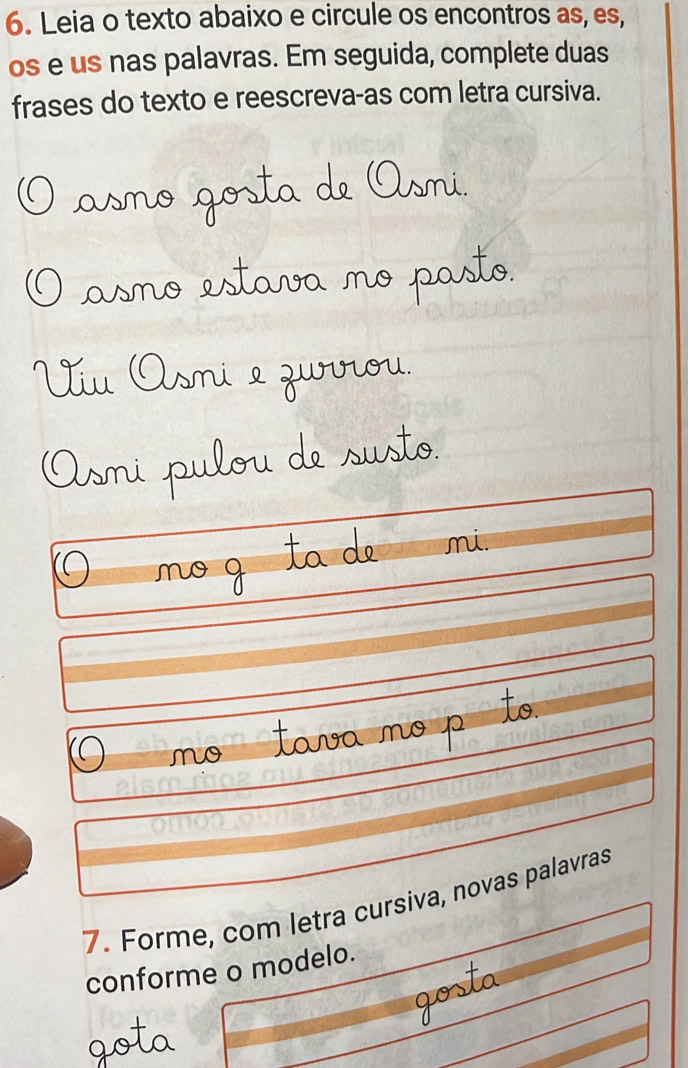 6. Leia o texto abaixo e circule os encontros as, es,
os e us nas palavras. Em seguida, complete duas
frases do texto e reescreva-as com letra cursiva.
O asno gosta de Asni.
O asno estava no pasto.
Viu Asni e zurrou.
Asni pulou de susto.
O no g ta de ni.
O no tava no p to.
7. Forme, com letra cursiva, novas palavras
conforme o modelo.
gosta
gota